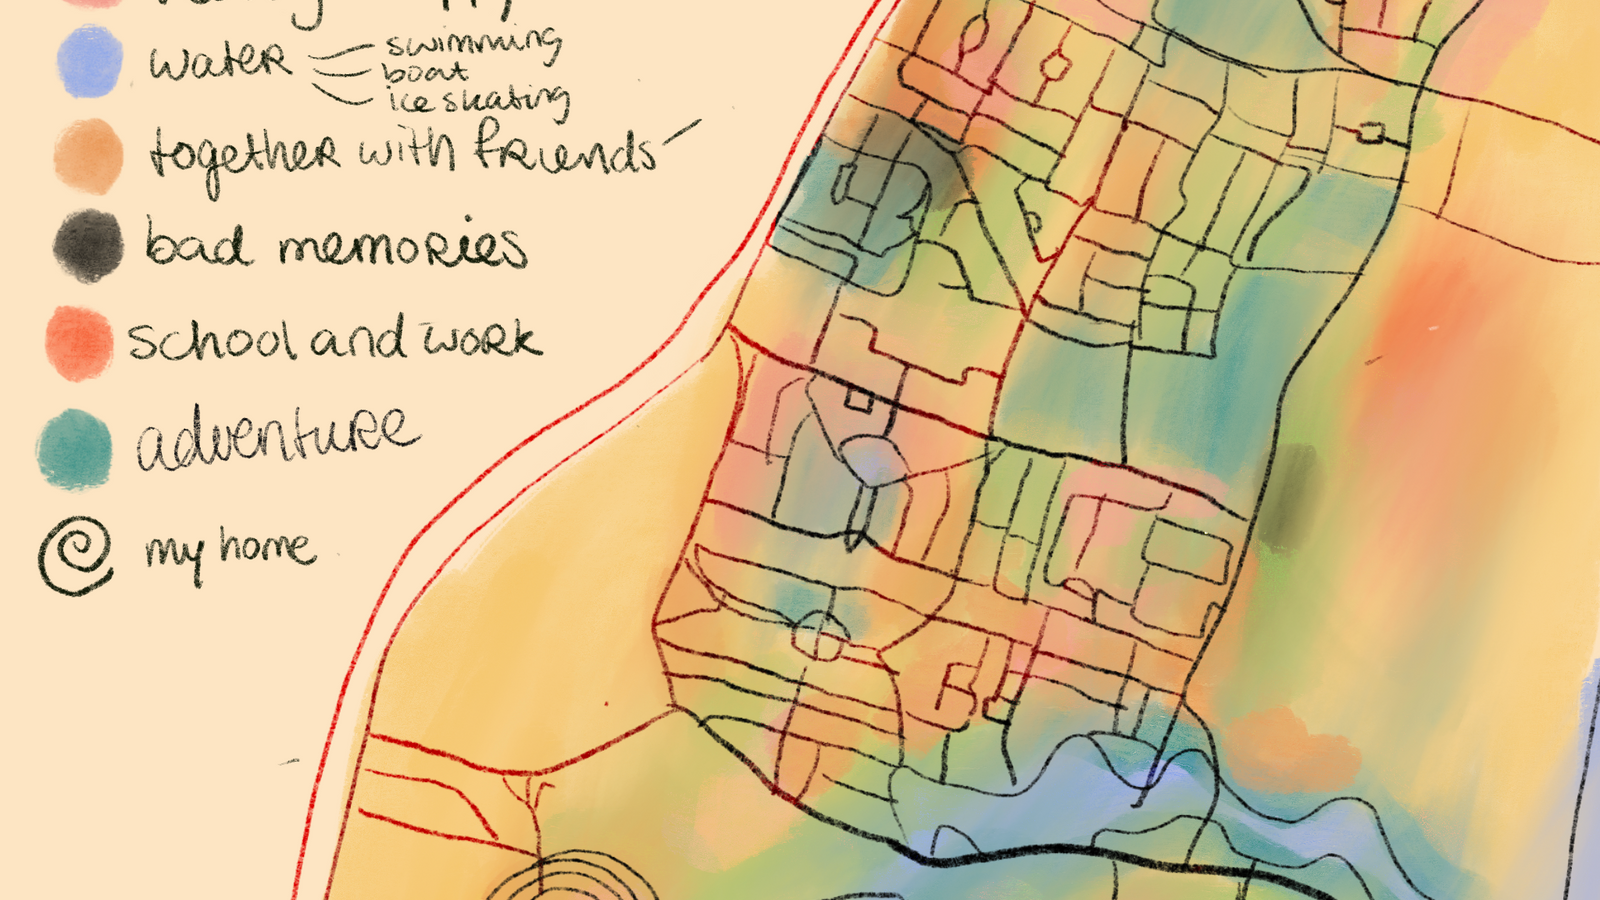 water
swimming
boat
ice skating
together with friends
bad memories
school and work
adventure
my home